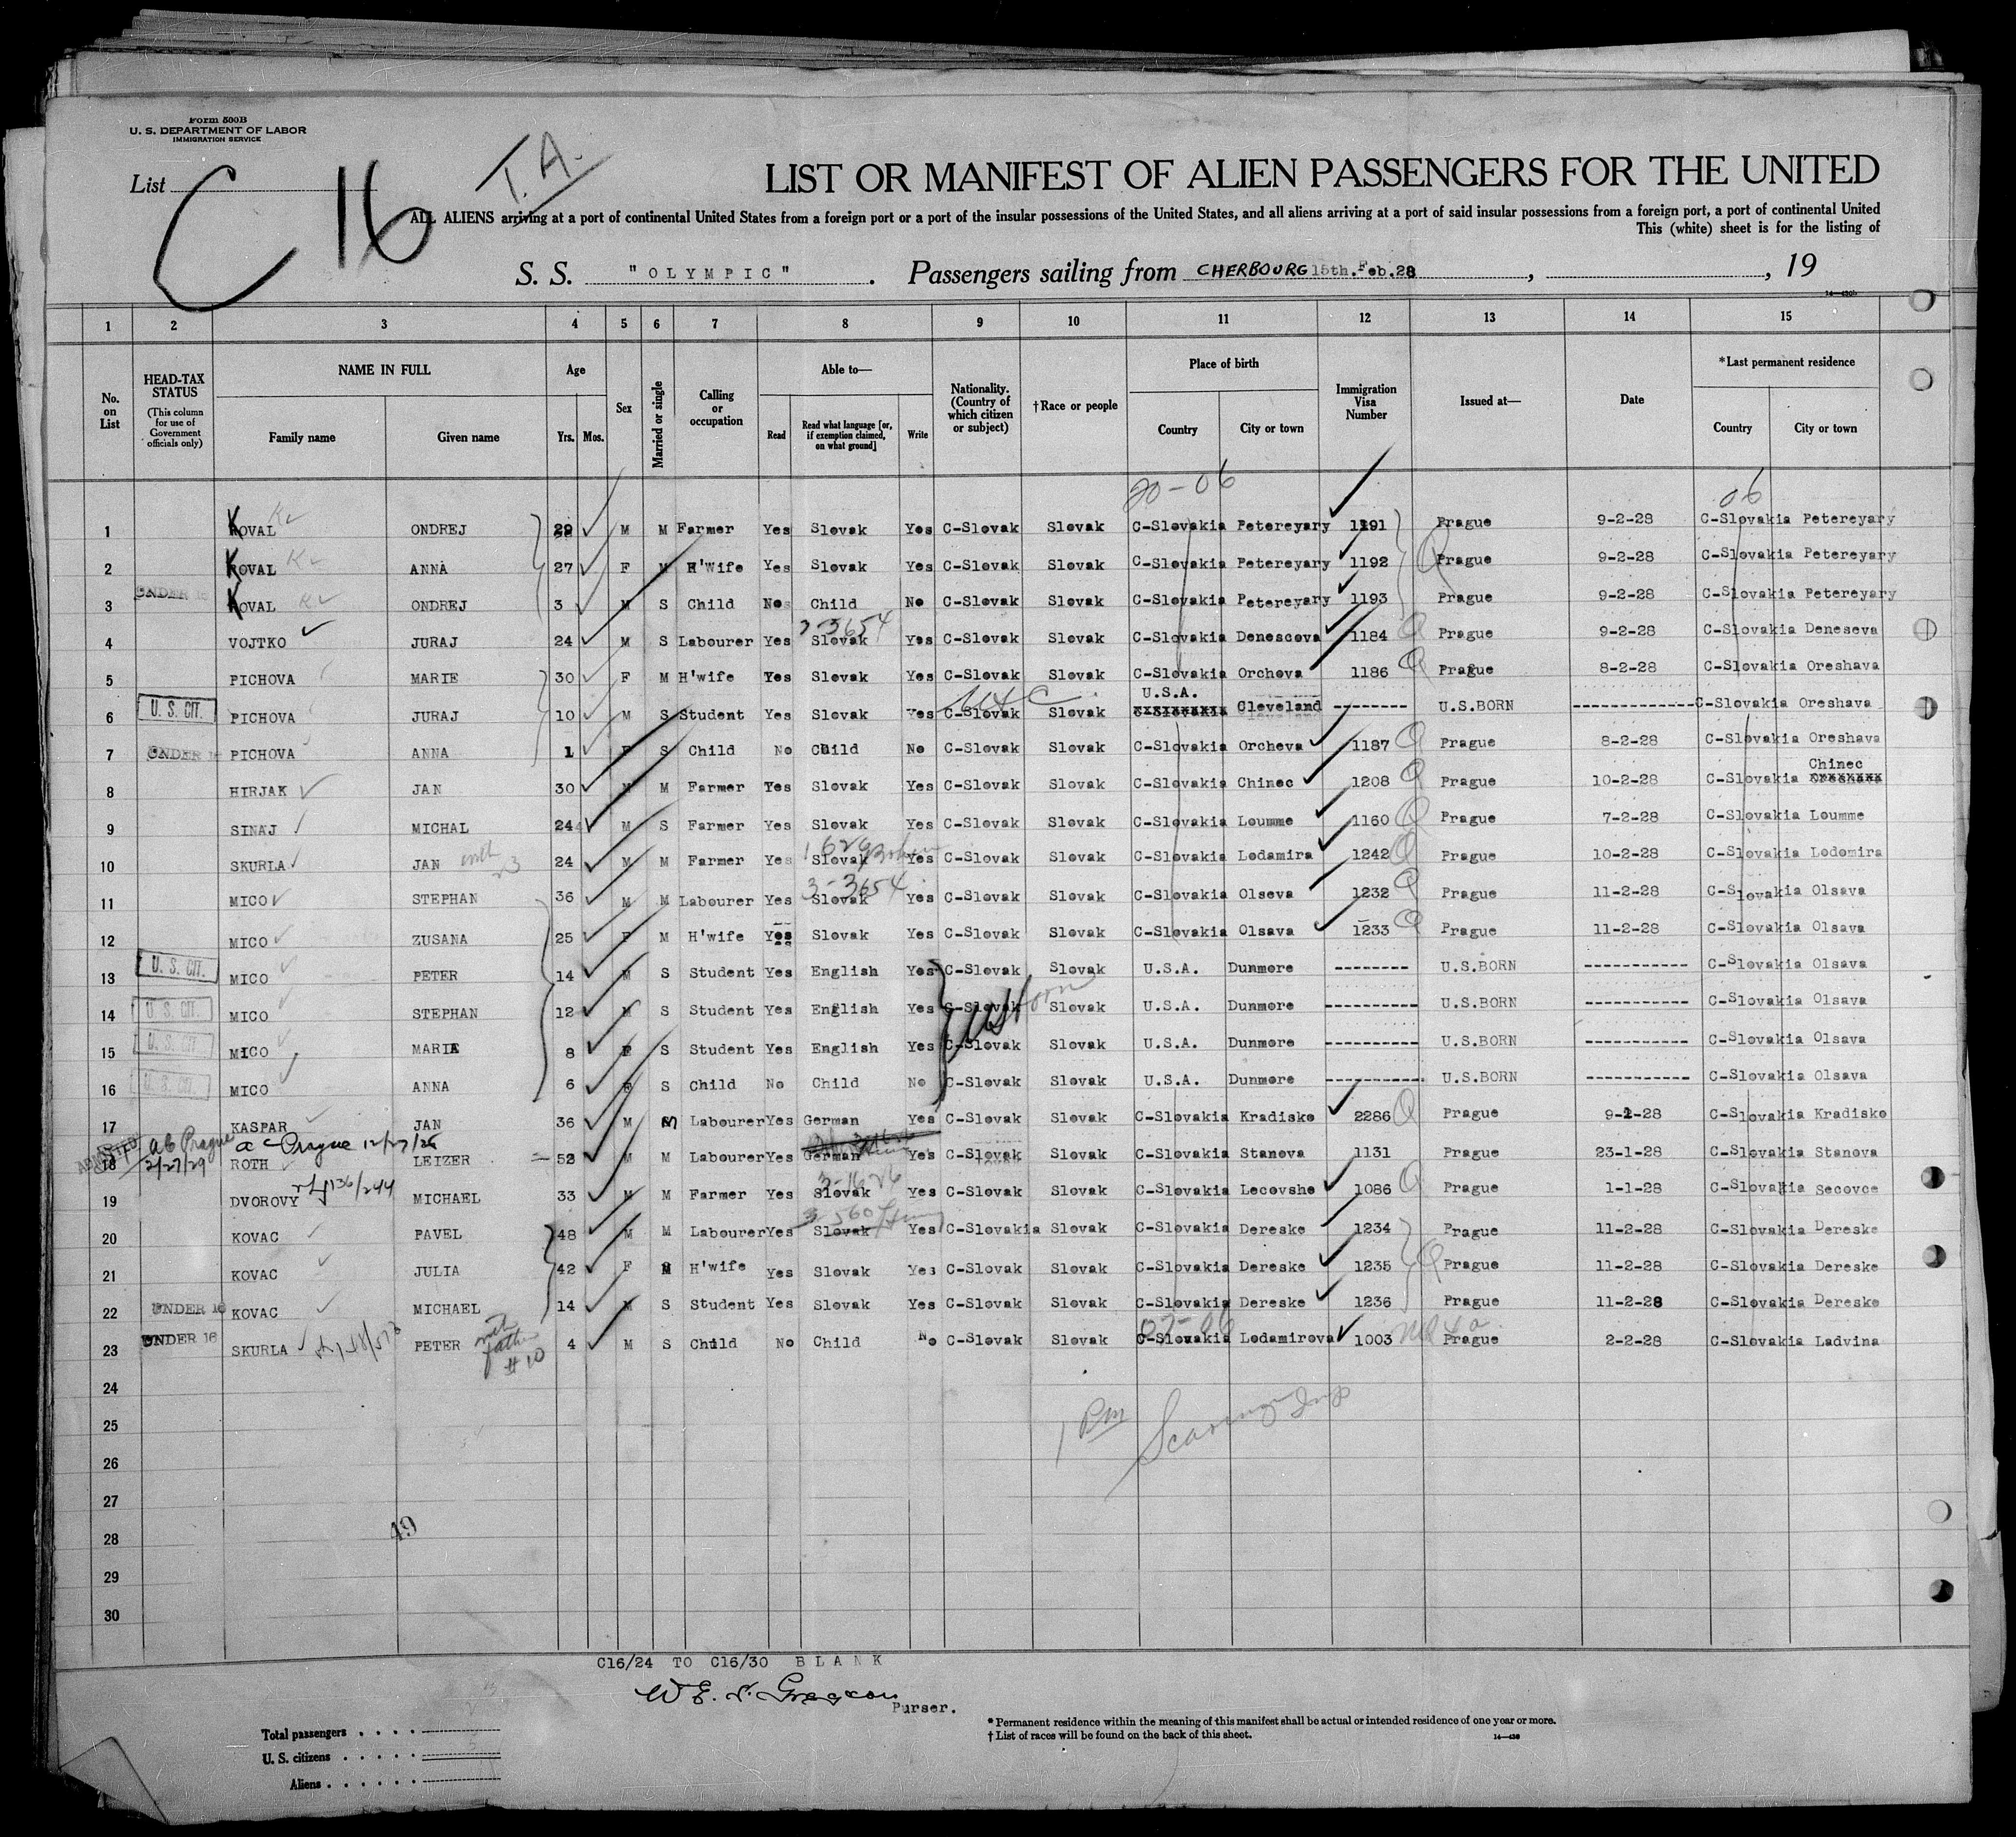 Form 500B
U. S. DEPARTMENT OF LABOR
IMMIGRATION SERVICE
List C 16 T.A.
LIST OR MANIFEST OF ALIEN PASSENGERS FOR THE UNITED
ALL ALIENS arriving at a port of continental United States from a foreign port or a port of the insular possessions of the United States, and all aliens arriving at a port of said insular possessions from a foreign port, a port of continental United
This (white) sheet is for the listing of
S. S. "OLYMPIC". Passengers sailing from CHERBOURG 15th.Feb.28, , 19
1 2 3 4 5 6 7 8 9 10 11 12 13 14 15
No. on List
HEAD-TAX STATUS (This column for use of Government officials only)
NAME IN FULL Family name Given name
Age Yrs. Mos.
Sex
Married or single
Calling or occupation
Able to— Read Read what language [or, if exemption claimed, on what ground] Write
Nationality. (Country of which citizen or subject)
†Race or people
Place of birth Country City or town
Immigration Visa Number
Issued at—
Date
*Last permanent residence Country City or town
20-06 06
1 KOVAL ONDREJ 29 M M Farmer Yes Slovak Yes C-Slovak Slovak C-Slovakia Petereyary 1191 Prague 9-2-28 C-Slovakia Petereyary
2 KOVAL ANNA 27 F M H'Wife Yes Slovak Yes C-Slovak Slovak C-Slovakia Petereyary 1192 Prague 9-2-28 C-Slovakia Petereyary
3 UNDER 16 KOVAL ONDREJ 3 M S Child No Child No C-Slovak Slovak C-Slovakia Petereyary 1193 Prague 9-2-28 C-Slovakia Petereyary
4 VOJTKO JURAJ 24 M S Labourer Yes Slovak Yes C-Slovak Slovak C-Slovakia Denescova 1184 Prague 9-2-28 C-Slovakia Deneseva
5 PICHOVA MARIE 30 F M H'wife Yes Slovak Yes C-Slovak Slovak C-Slovakia Orcheva 1186 Prague 8-2-28 C-Slovakia Oreshava
6 U. S. CIT. PICHOVA JURAJ 10 M S Student Yes Slovak Yes C-Slovak Slovak U.S.A. Cleveland -------- U.S.BORN -------------- C-Slovakia Oreshava
7 UNDER 16 PICHOVA ANNA 1 F S Child No Child No C-Slovak Slovak C-Slovakia Orcheva 1187 Prague 8-2-28 C-Slovakia Oreshava
8 HIRJAK JAN 30 M M Farmer Yes Slovak Yes C-Slovak Slovak C-Slovakia Chinec 1208 Prague 10-2-28 C-Slovakia Chinec
9 SINAJ MICHAL 24 M S Farmer Yes Slovak Yes C-Slovak Slovak C-Slovakia Loumme 1160 Prague 7-2-28 C-Slovakia Loumme
10 SKURLA JAN with 23 24 M M Farmer Yes Slovak Yes C-Slovak Slovak C-Slovakia Lodamira 1242 Prague 10-2-28 C-Slovakia Lodomira
11 MICO STEPHAN 36 M M Labourer Yes 3-3654 Slovak Yes C-Slovak Slovak C-Slovakia Olseva 1232 Prague 11-2-28 C-Slovakia Olsava
12 MICO ZUSANA 25 F M H'wife Yes Slovak Yes C-Slovak Slovak C-Slovakia Olsava 1233 Prague 11-2-28 C-Slovakia Olsava
13 U. S. CIT. MICO PETER 14 M S Student Yes English Yes C-Slovak Slovak U.S.A. Dunmore -------- U.S.BORN ----------- C-Slovakia Olsava
14 U. S. CIT. MICO STEPHAN 12 M S Student Yes English Yes C-Slovak Slovak U.S.A. Dunmore ---------- U.S.BORN ----------- C-Slovakia Olsava
US Born
15 U. S. CIT. MICO MARIE 8 F S Student Yes English Yes C-Slovak Slovak U.S.A. Dunmore ---------- U.S.BORN ----------- C-Slovakia Olsava
16 U. S. CIT. MICO ANNA 6 S Child No Child No C-Slovak Slovak U.S.A. Dunmore ----------- U.S.BORN ----------- C-Slovakia Olsava
17 KASPAR JAN 36 M M Labourer Yes German Yes C-Slovak Slovak C-Slovakia Kradisko 2286 Prague 9-2-28 C-Slovakia Kradisko
ac Prague 2/27/29 ac Prague 12/27/28
18 ROTH LEIZER 52 M M Labourer Yes German Yes C-Slovak Slovak C-Slovakia Stanova 1131 Prague 23-1-28 C-Slovakia Stanova
19 DVOROVY MICHAEL 33 M M Farmer Yes 3-1626 Slovak Yes C-Slovak Slovak C-Slovakia Lecovshe 1086 Prague 1-1-28 C-Slovakia Secovce
20 KOVAC PAVEL 48 M M Labourer Yes Slovak Yes C-Slovakia Slovak C-Slovakia Dereske 1234 Prague 11-2-28 C-Slovakia Dereske
21 KOVAC JULIA 42 F M H'wife Yes Slovak Yes C-Slovak Slovak C-Slovakia Dereske 1235 Prague 11-2-28 C-Slovakia Dereske
22 UNDER 16 KOVAC MICHAEL 14 M S Student Yes Slovak Yes C-Slovak Slovak C-Slovakia Dereske 1236 Prague 11-2-28 C-Slovakia Dereske
23 UNDER 16 SKURLA PETER with father #10 4 M S Child No Child No C-Slovak Slovak C-Slovakia Lodamirova 1003 Prague 2-2-28 C-Slovakia Ladvina
24
25 1 Pm
26
27
28 49
29
30
C16/24 TO C16/30 BLANK
Purser.
Total passengers
U. S. citizens
Aliens
* Permanent residence within the meaning of this manifest shall be actual or intended residence of one year or more.
† List of races will be found on the back of this sheet.